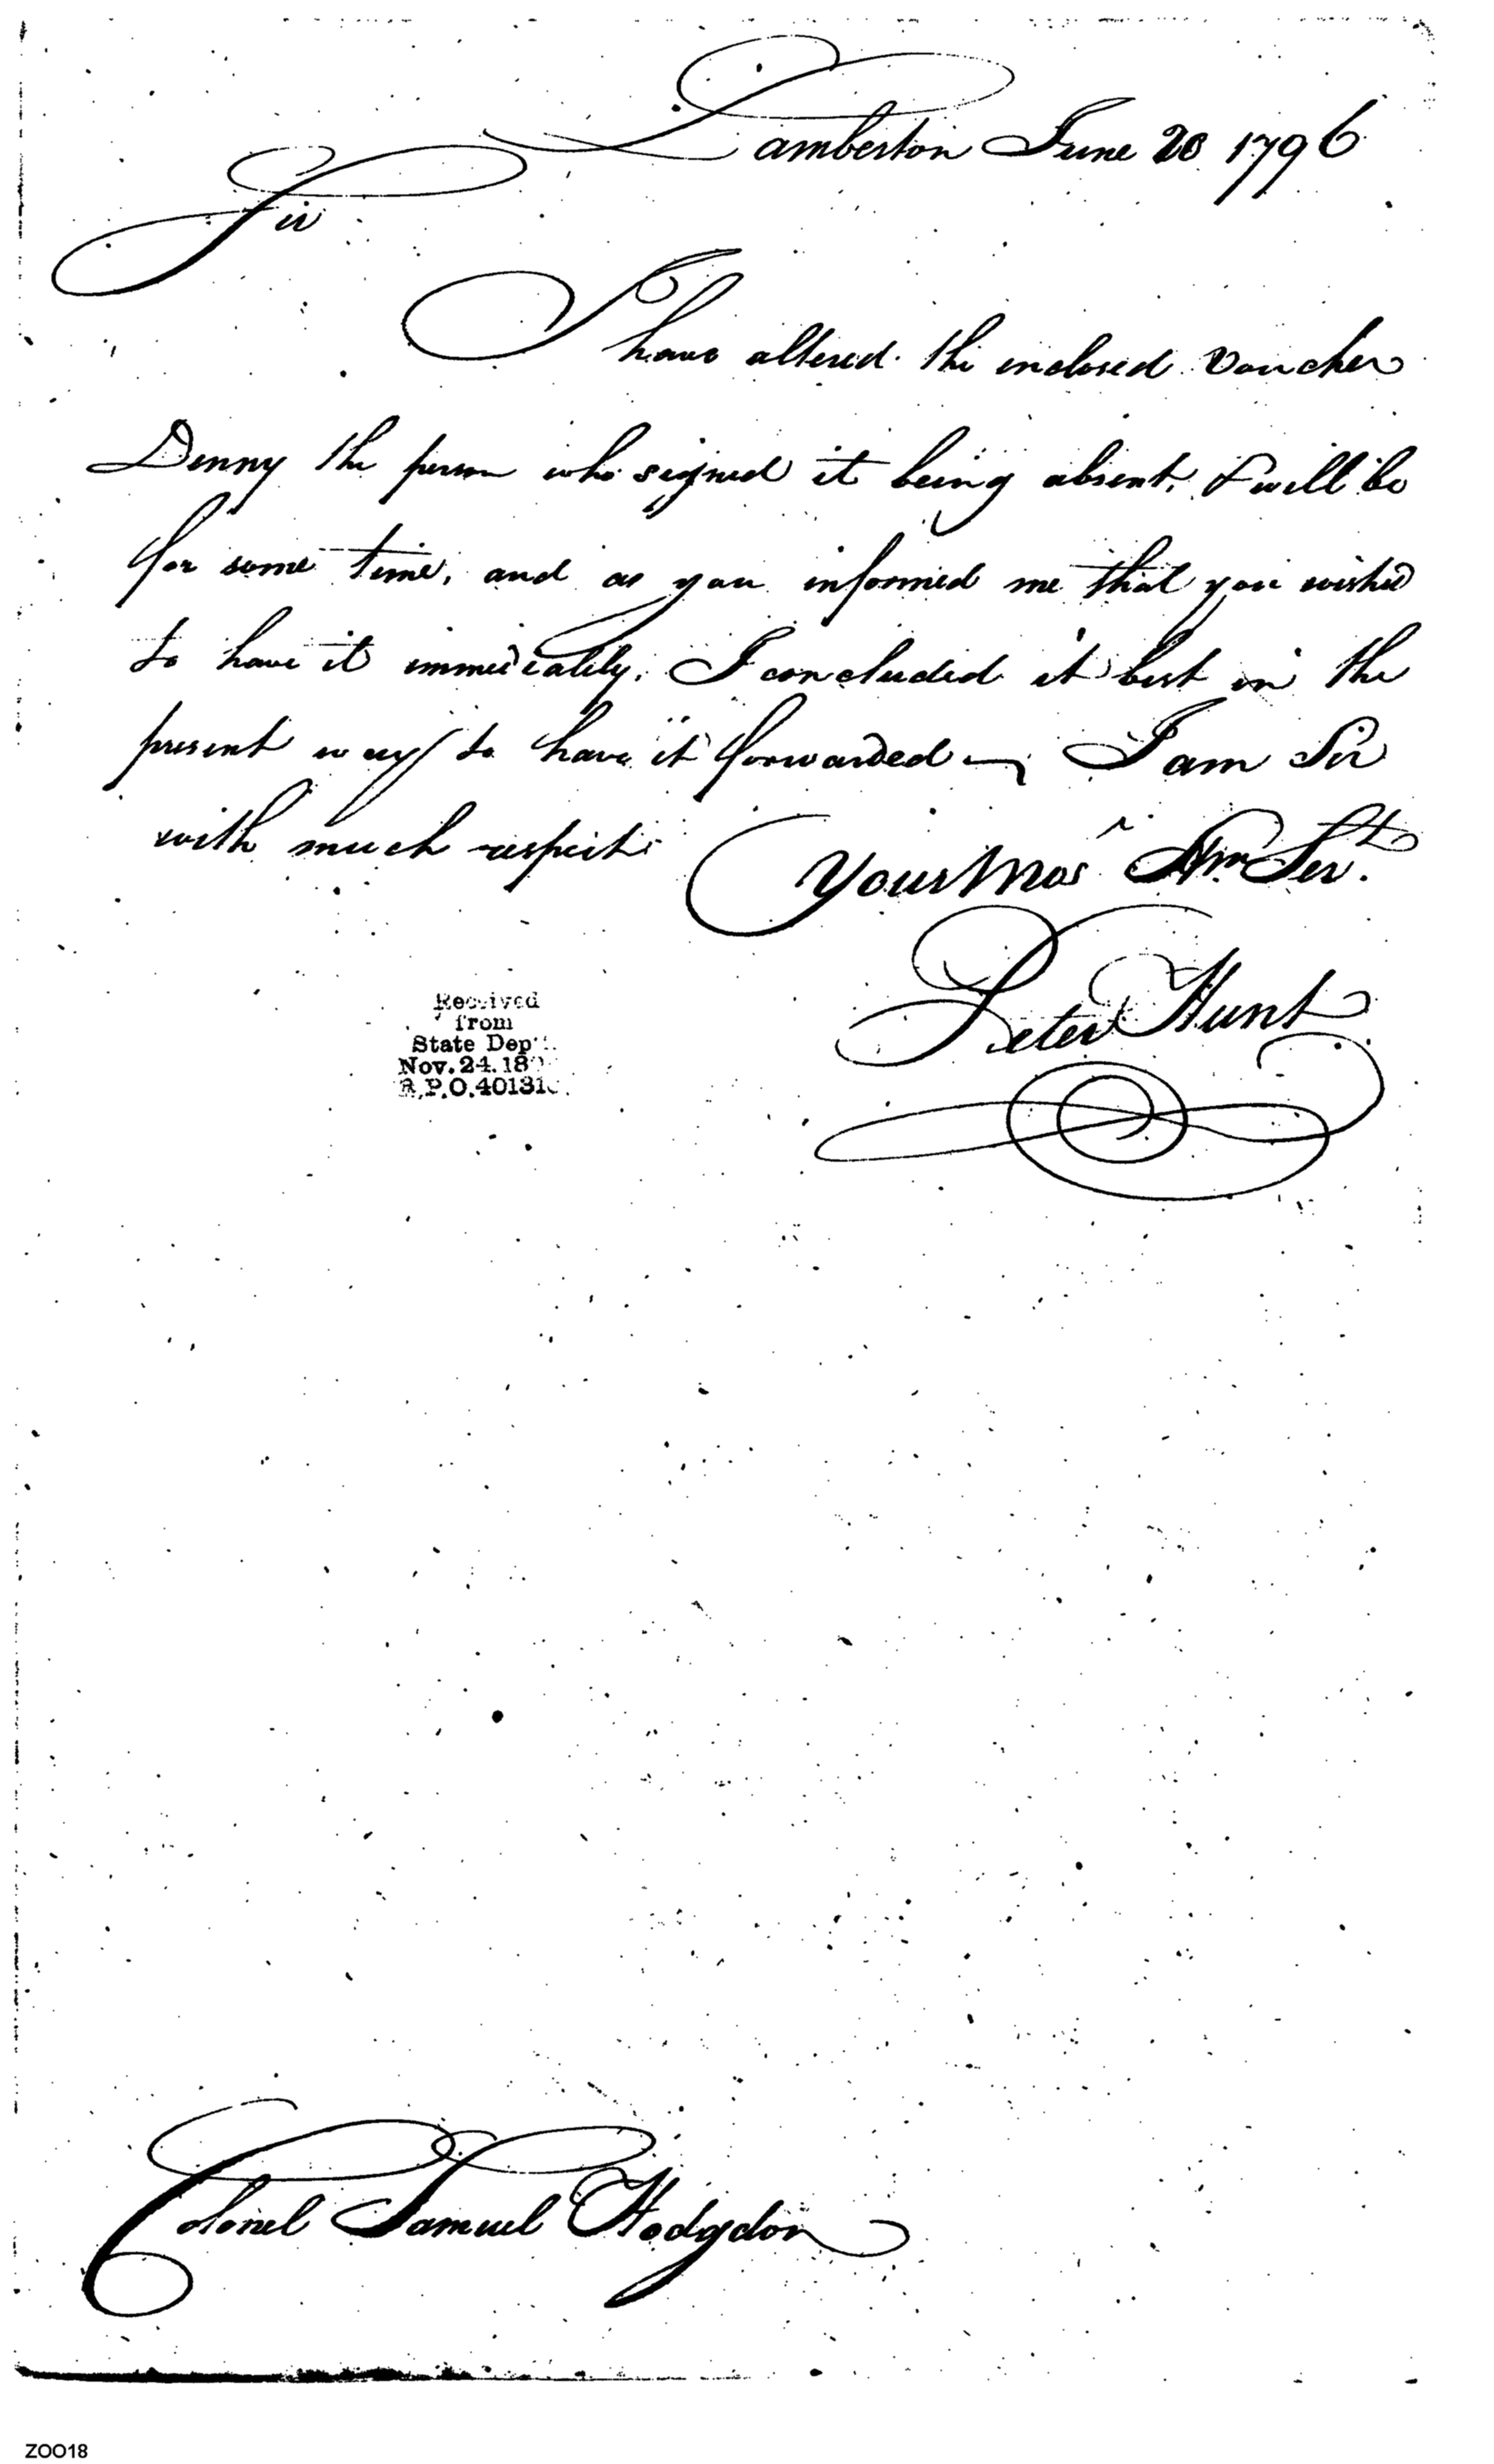 Lamberton June 20 1796
Sir
I have altered the inclosed Voucher
Denny the person who signed it being absent, & will be
for some time, and as you informed me that you wished
to have it immediately, I concluded it best in the
present way to have it forwarded — I am Sir
with much respect
Your Mos Hm Sert.
Peter Hunt
Received
from
State Dept.
Nov. 24. 18
R.P.O. 40131
Colonel Samuel Hodgdon
ZOO18